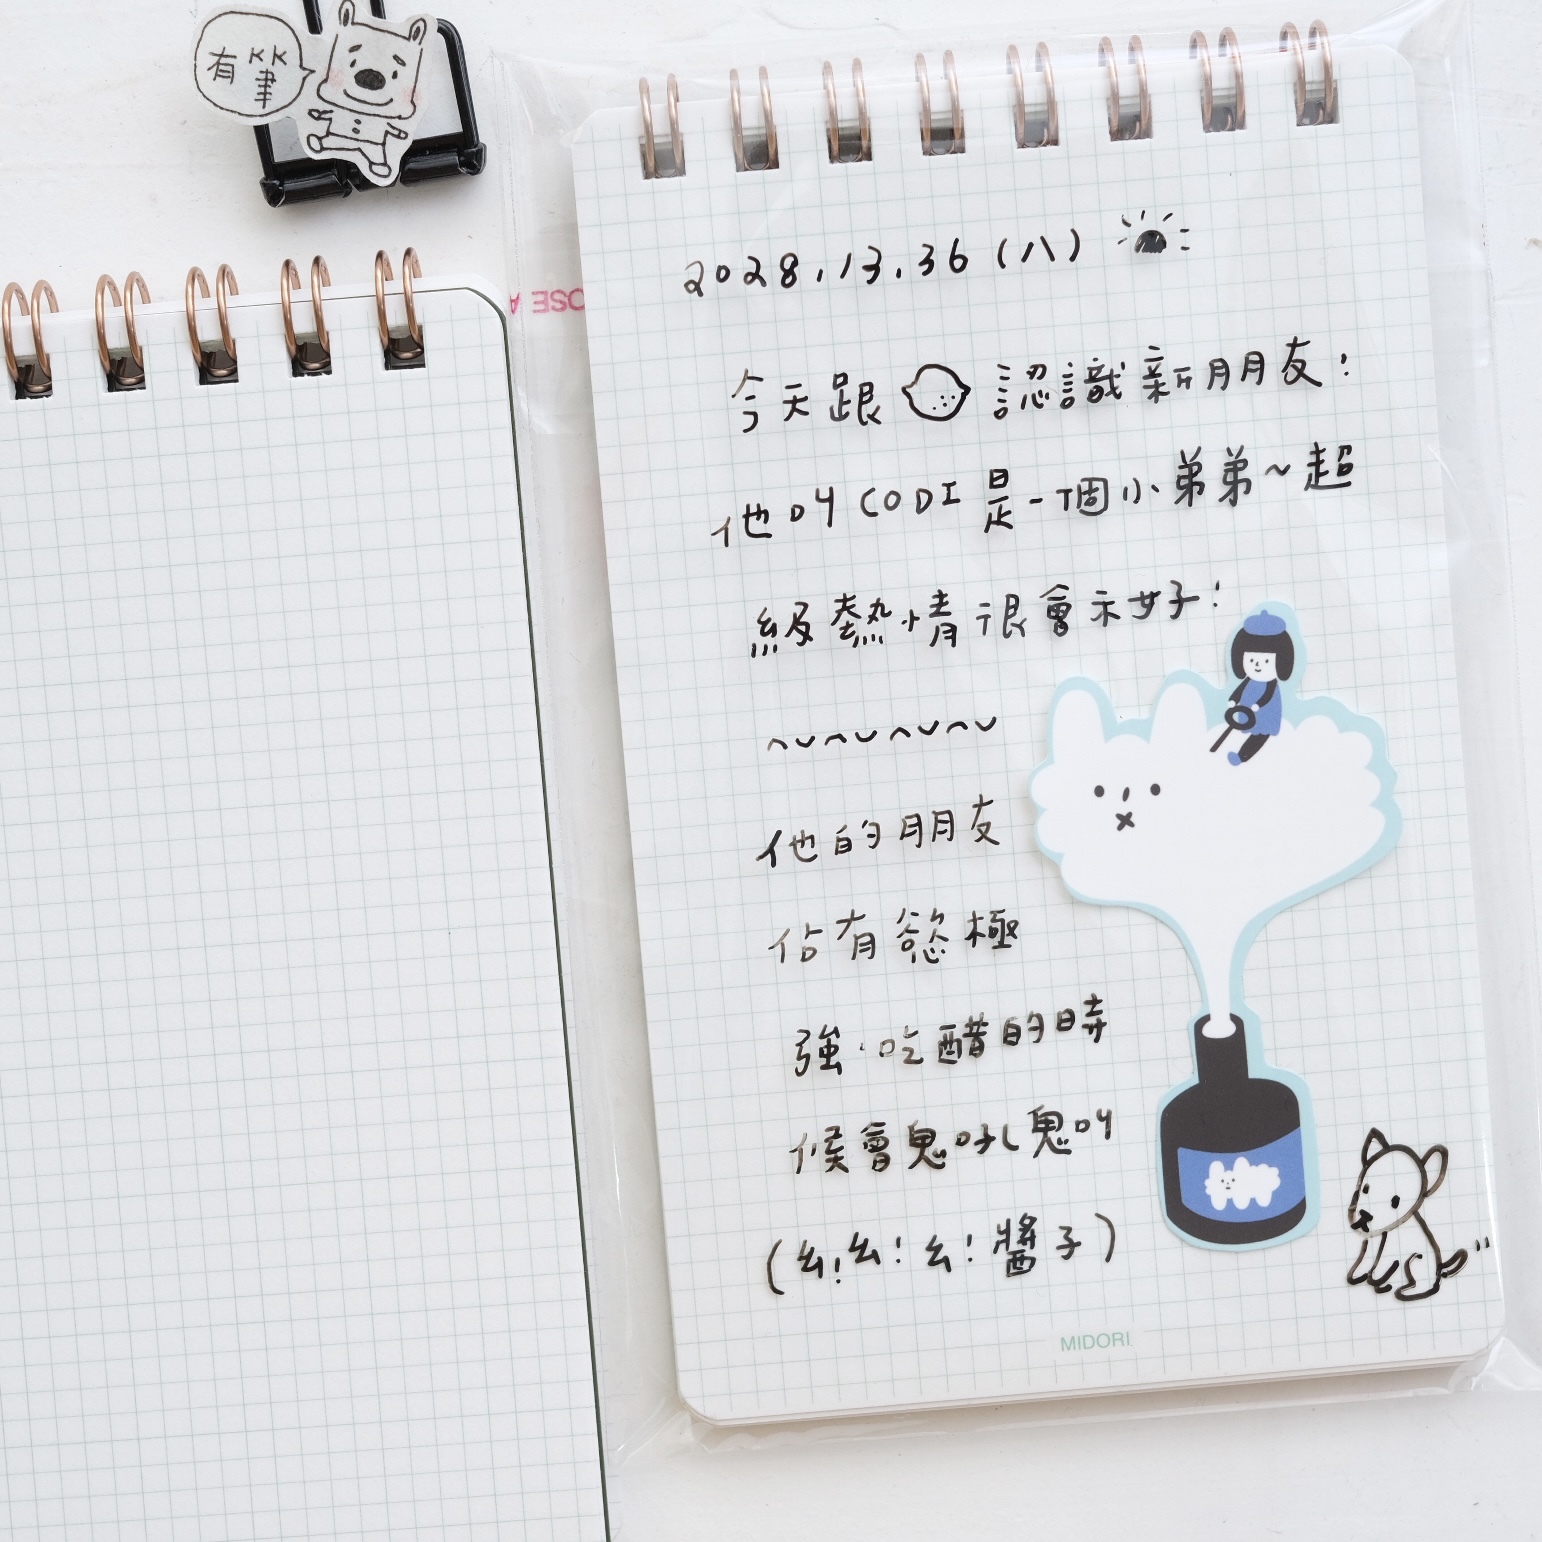 有
筆
2028.13.36(八)
今天跟 認識新朋友!
他叫CODI是一個小弟弟~超
級熱情很會示好!
他的朋友
佔有慾極
強.吃醋的時
候會鬼吼鬼叫
(ㄠ!ㄠ!ㄠ!醬子)
MIDORI